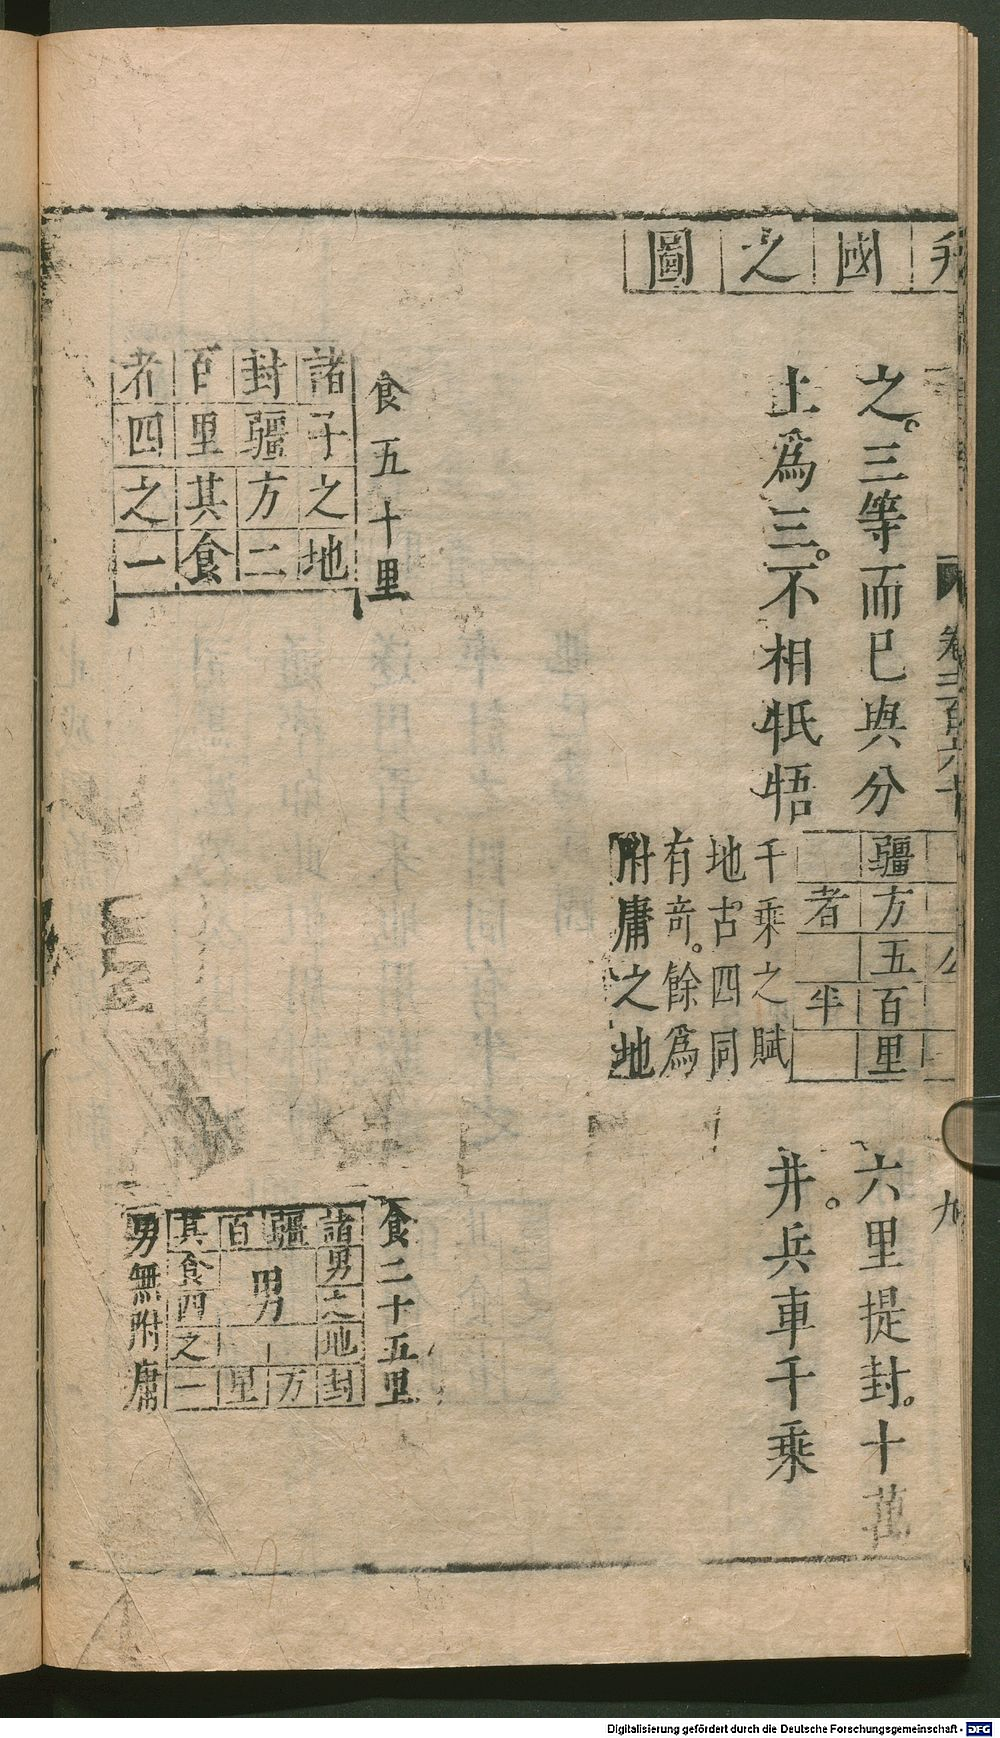 國之圖
卷三百六十
九
之三等而已與分
土爲三不相牴牾
公
疆方五百里
者半
千乘之賦
地古四同
有奇餘爲
附庸之地
六里提封十萬
井兵車千乘
食五十里
諸子之地
封疆方二
百里其食
者四之一
食二十五里
諸男之地封
疆方
百里
男
其食四之一
男無附庸
Digitalisierung gefördert durch die Deutsche Forschungsgemeinschaft - DFG